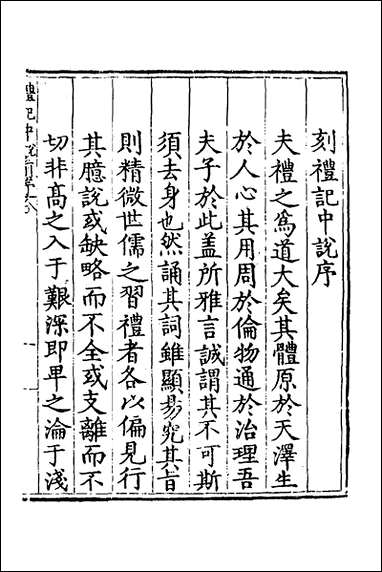 刻禮記中說序
夫禮之為道大矣其體原於天澤生
於人心其用周於倫物通於治理吾
夫子於此盖所雅言誠謂其不可斯
須去身也然誦其詞雖顯昜究其旨
則精微世儒之習禮者各以偏見行
其臆說或缺略而不全或支離而不
切非高之入于艱深即卑之淪于淺
禮記中說